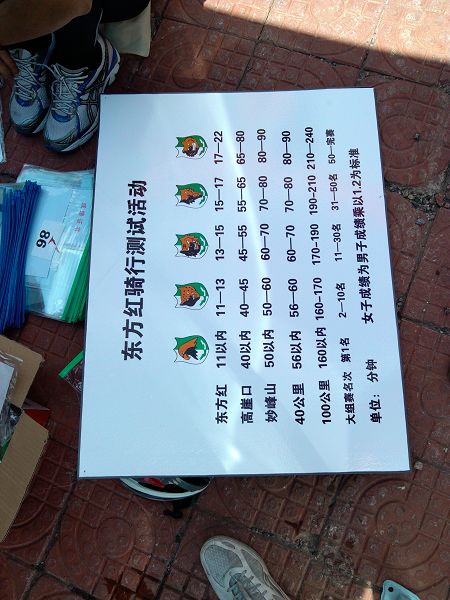 东方红骑行测试活动
东方红 11以内 11—13 13—15 15—17 17—22
高崖口 40以内 40—45 45—55 55—65 65—80
妙峰山 50以内 50—60 60—70 70—80 80—90
40公里 56以内 56—60 60—70 70—80 80—90
100公里 160以内 160—170 170—190 190—210 210—240
大组赛名次 第1名 2—10名 11—30名 31—50名 50—完赛
单位：分钟 女子成绩为男子成绩乘以1.2为标准
98